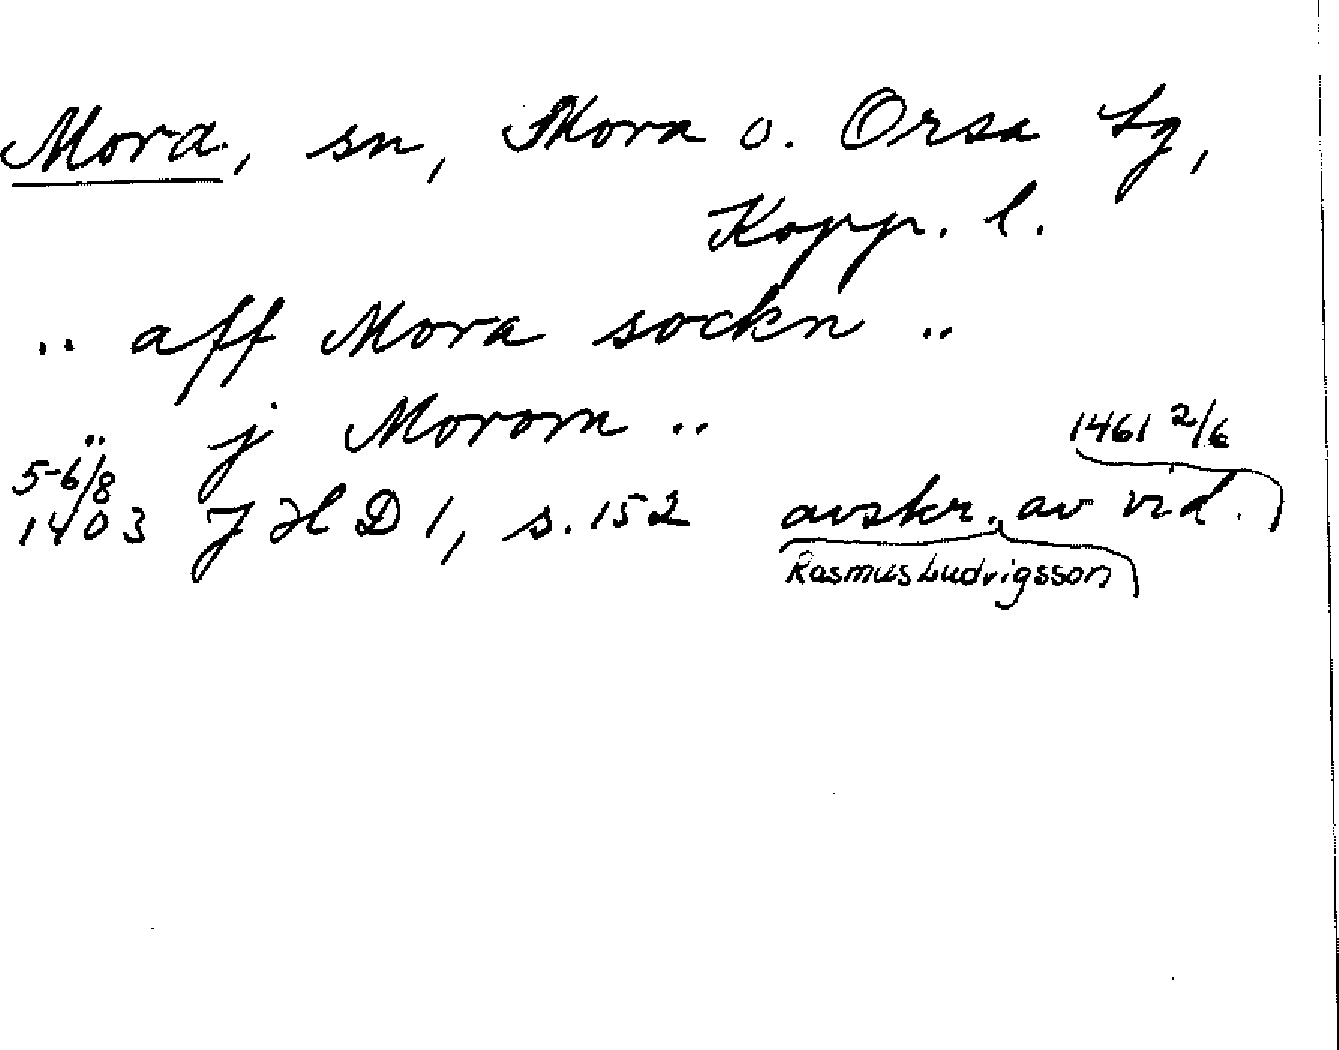 Mora, sn, Mora o. Orsa tg,
Kopp. l.
.. aff Mora sockn ..
.. j Morom ..
5-6/8 1461 2/6
1403 JHD 1, s. 152 avskr. av vid.
Rasmus Ludvigsson